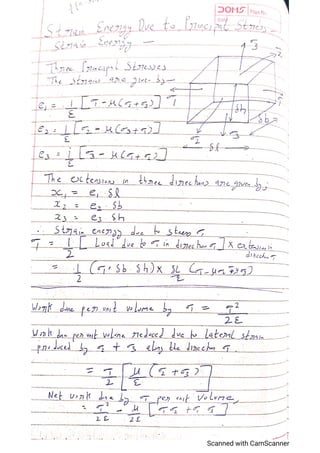 DOMS
Strain Energy Due to Principal Stress -
Strain Energy -
Three Principal Stresses
The Strains are given by -
e₁ = 1/E [σ₁ - μ(σ₂+σ₃)]
e₂ = 1/E [σ₂ - μ(σ₃+σ₁)]
e₃ = 1/E [σ₃ - μ(σ₁+σ₂)]
δh
δb
δl
The extensions in three directions are given by,
x₁ = e₁ δl
x₂ = e₂ · δb
x₃ = e₃ δh
∴ Strain energy due to stress σ₁
= 1/2 [Load due to σ₁ in direction σ₁] × extension in
direction σ₁
= 1/2 (σ₁ · δb δh) × δl/E (σ₁ - μσ₂+σ₃)
Work done per unit volume by σ₁ = σ₁²/2E
Work done per unit volume reduced due to lateral strain
produced by σ₂ + σ₃ along the direction σ₁
= σ₁/2 [μ/E (σ₂ + σ₃)]
Net work done by σ₁ per unit volume,
= σ₁²/2E - μ/2E [σ₁σ₂ + σ₁σ₃]
Scanned with CamScanner